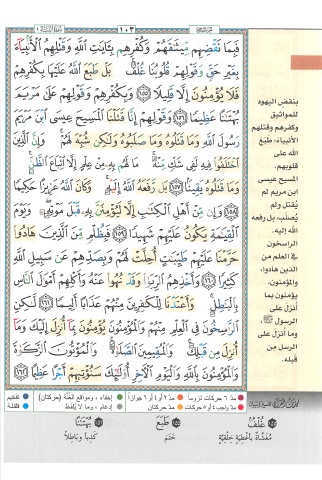 ١٠٣
فَبِمَا نَقْضِهِم مِّيثَٰقَهُمْ وَكُفْرِهِم بِـَٔايَٰتِ ٱللَّهِ وَقَتْلِهِمُ ٱلْأَنۢبِيَآءَ
بِغَيْرِ حَقٍّ وَقَوْلِهِمْ قُلُوبُنَا غُلْفٌۢ ۚ بَلْ طَبَعَ ٱللَّهُ عَلَيْهَا بِكُفْرِهِمْ
فَلَا يُؤْمِنُونَ إِلَّا قَلِيلًا ١٥٥ وَبِكُفْرِهِمْ وَقَوْلِهِمْ عَلَىٰ مَرْيَمَ
بُهْتَٰنًا عَظِيمًا ١٥٦ وَقَوْلِهِمْ إِنَّا قَتَلْنَا ٱلْمَسِيحَ عِيسَى ٱبْنَ مَرْيَمَ
رَسُولَ ٱللَّهِ وَمَا قَتَلُوهُ وَمَا صَلَبُوهُ وَلَٰكِن شُبِّهَ لَهُمْ ۚ وَإِنَّ ٱلَّذِينَ
ٱخْتَلَفُوا۟ فِيهِ لَفِى شَكٍّ مِّنْهُ ۚ مَا لَهُم بِهِۦ مِنْ عِلْمٍ إِلَّا ٱتِّبَاعَ ٱلظَّنِّ ۚ
وَمَا قَتَلُوهُ يَقِينًۢا ١٥٧ بَل رَّفَعَهُ ٱللَّهُ إِلَيْهِ ۚ وَكَانَ ٱللَّهُ عَزِيزًا حَكِيمًا
١٥٨ وَإِن مِّنْ أَهْلِ ٱلْكِتَٰبِ إِلَّا لَيُؤْمِنَنَّ بِهِۦ قَبْلَ مَوْتِهِۦ ۖ وَيَوْمَ
ٱلْقِيَٰمَةِ يَكُونُ عَلَيْهِمْ شَهِيدًا ١٥٩ فَبِظُلْمٍ مِّنَ ٱلَّذِينَ هَادُوا۟
حَرَّمْنَا عَلَيْهِمْ طَيِّبَٰتٍ أُحِلَّتْ لَهُمْ وَبِصَدِّهِمْ عَن سَبِيلِ ٱللَّهِ
كَثِيرًا ١٦٠ وَأَخْذِهِمُ ٱلرِّبَوٰا۟ وَقَدْ نُهُوا۟ عَنْهُ وَأَكْلِهِمْ أَمْوَٰلَ ٱلنَّاسِ
بِٱلْبَٰطِلِ ۚ وَأَعْتَدْنَا لِلْكَٰفِرِينَ مِنْهُمْ عَذَابًا أَلِيمًا ١٦١ لَّٰكِنِ
ٱلرَّٰسِخُونَ فِى ٱلْعِلْمِ مِنْهُمْ وَٱلْمُؤْمِنُونَ يُؤْمِنُونَ بِمَآ أُنزِلَ إِلَيْكَ وَمَآ
أُنزِلَ مِن قَبْلِكَ ۚ وَٱلْمُقِيمِينَ ٱلصَّلَوٰةَ ۚ وَٱلْمُؤْتُونَ ٱلزَّكَوٰةَ
وَٱلْمُؤْمِنُونَ بِٱللَّهِ وَٱلْيَوْمِ ٱلْـَٔاخِرِ أُو۟لَٰٓئِكَ سَنُؤْتِيهِمْ أَجْرًا عَظِيمًا ١٦٢
بنقض اليهود
للمواثيق
وكفرهم وقتلهم
الأنبياء، طبع
الله على
قلوبهم.
المسيح عيسى
ابن مريم لم
يُقتل ولم
يُصلب، بل رفعه
الله إليه.
الراسخون
في العلم من
الذين هادوا،
والمؤمنون،
يؤمنون بما
أنزل على
الرسول ﷺ،
وما أنزل على
الرسل من
قبله.
مدّ ٦ حركات لزوماً
مدّ ٢ أو ٤ أو ٦ جوازاً
إخفاء، ومواقع الغُنَّة (حركتان)
تفخيم
مدّ واجب ٤ أو ٥ حركات
مدّ حركتان
إدغام، وما لا يُلفظ
قلقلة
غُلْفٌ
مُغَشَّاةٌ بأغطيةٍ خِلْقِيَّةٍ
طَبَعَ
خَتَمَ
بُهْتَانًا
كذباً وباطلاً